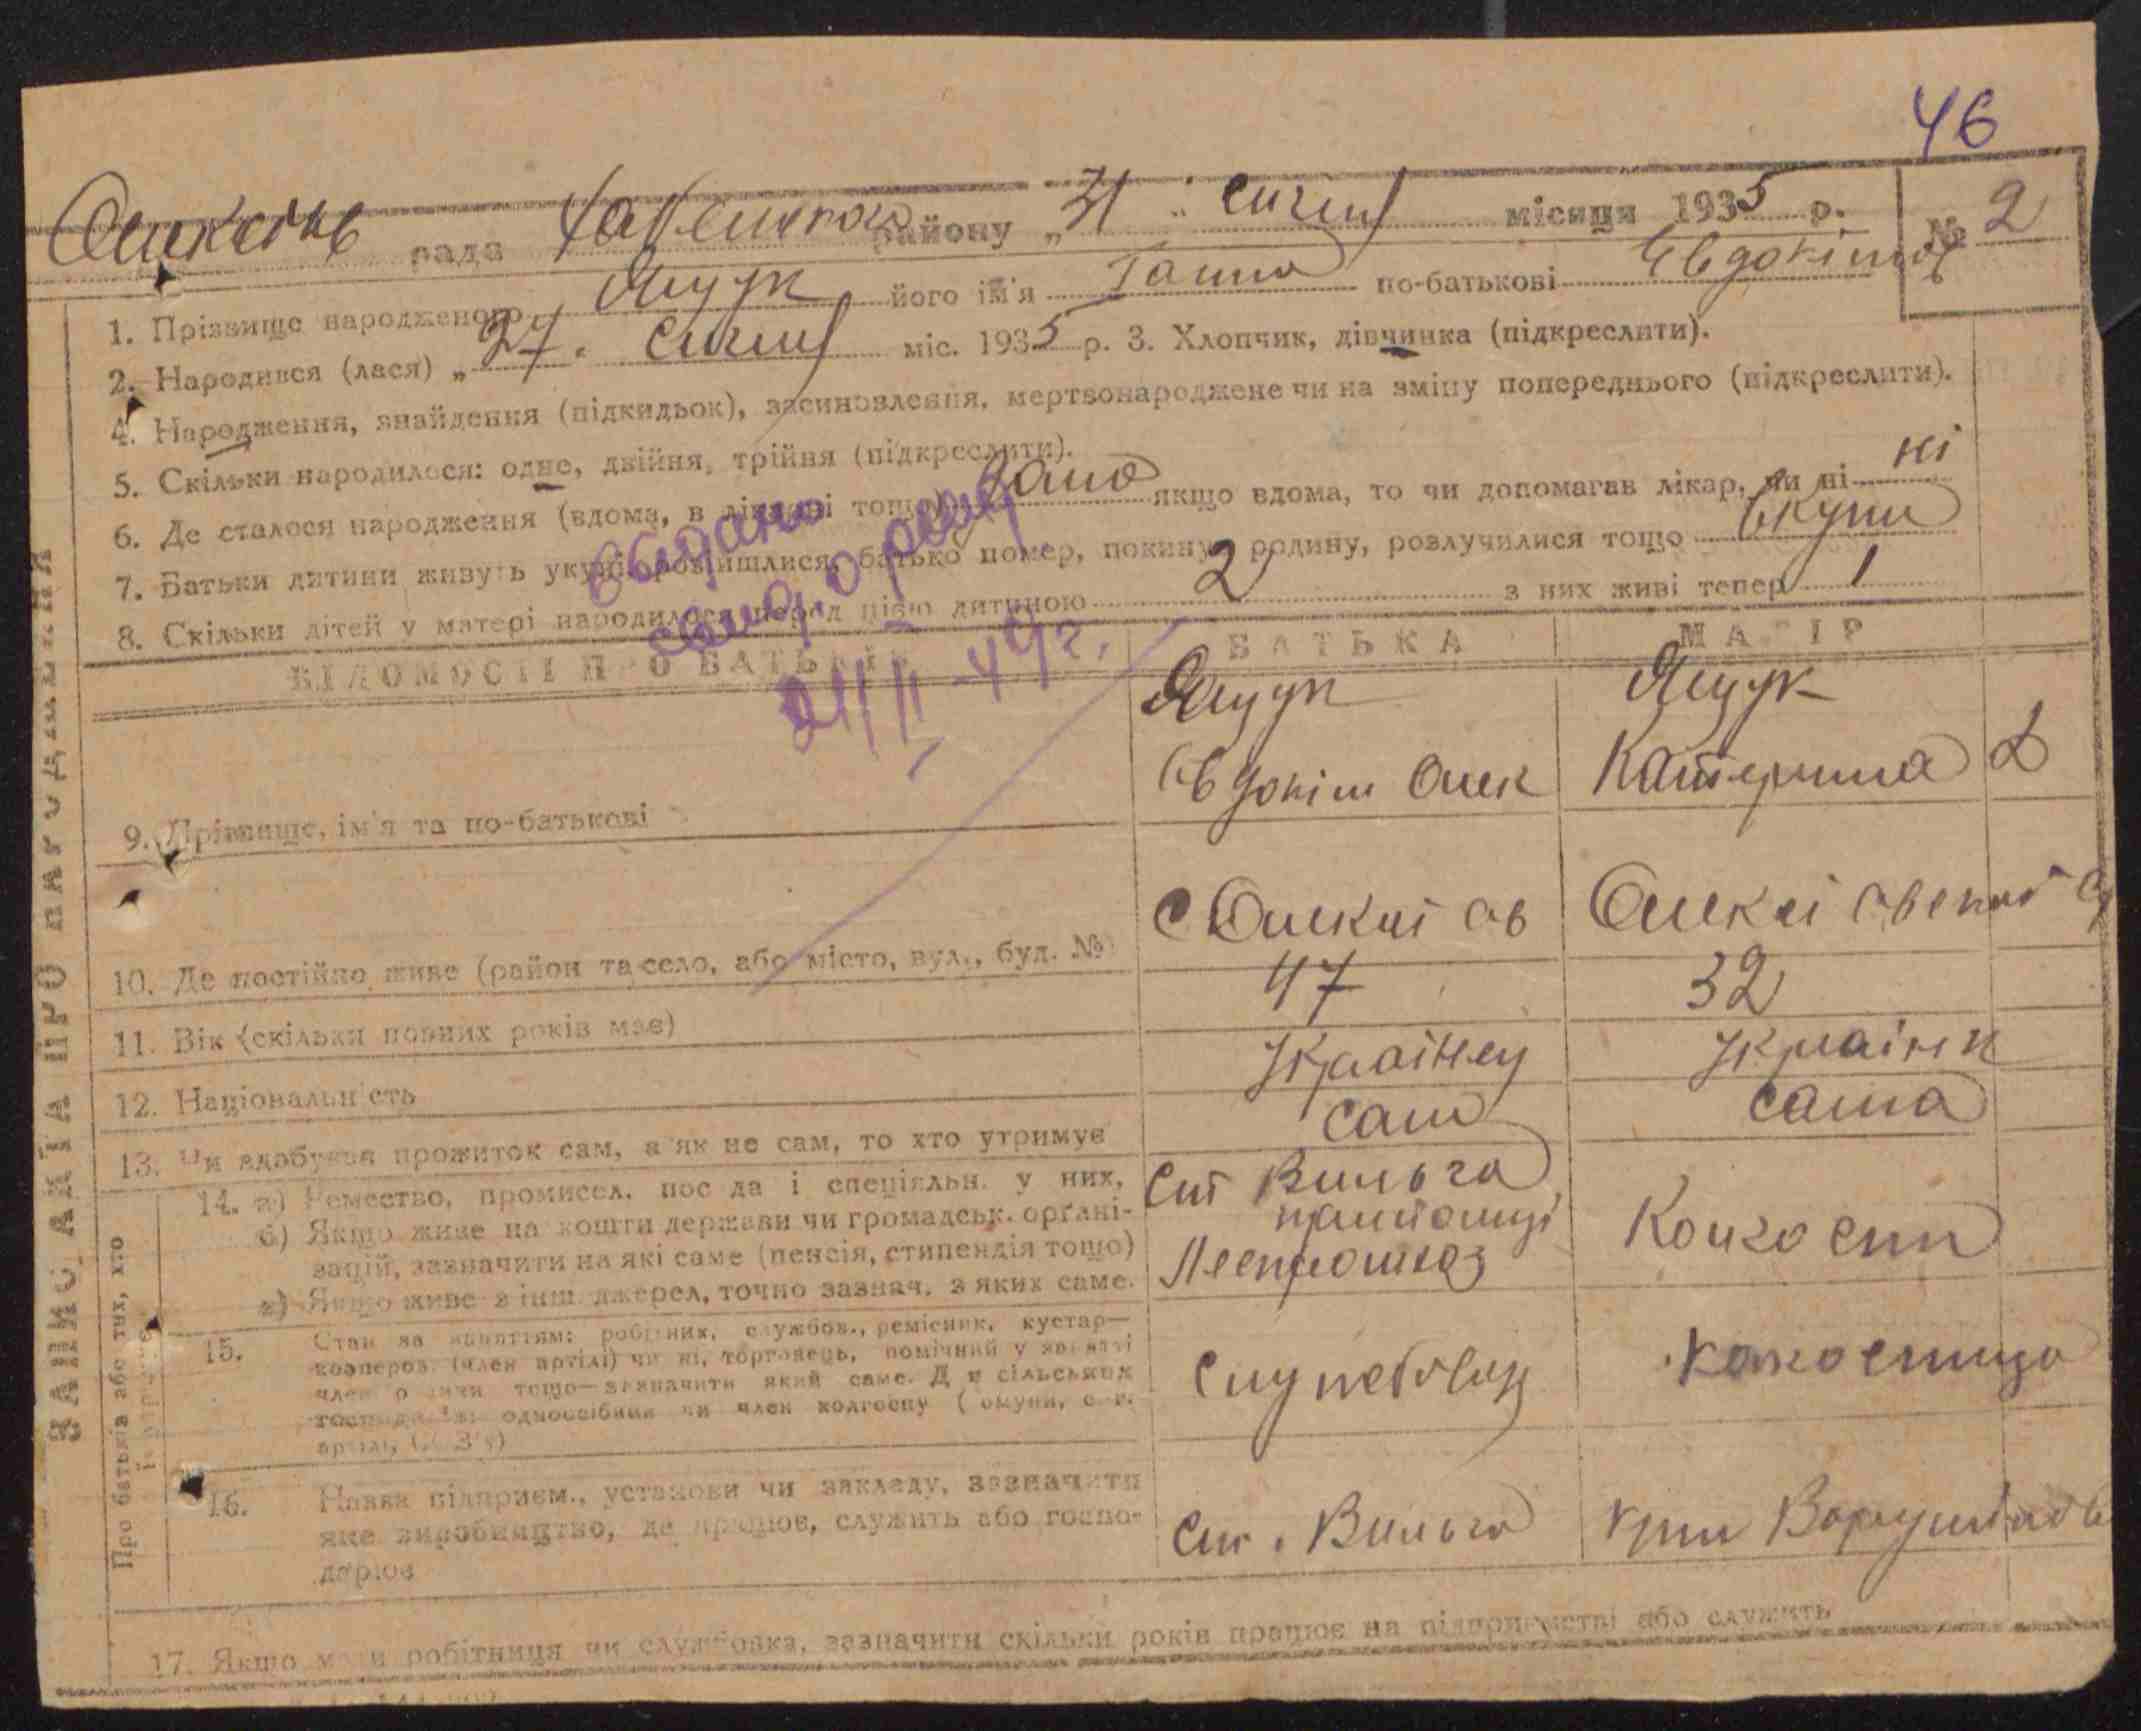 46
рада району „31“ січня місяця 1935 р. № 2
1. Прізвище народженого Ящук його ім'я Ганна по-батькові Євдокімов
2. Народився (лася) „27“ січня міс. 1935 р. 3. Хлопчик, дівчинка (підкреслити).
4. Народження, знайдення (підкидьок), засиновлення, мертвонароджене чи на зміну попереднього (підкреслити).
5. Скільки народилося: одне, двійня, трійня (підкреслити).
6. Де сталося народження (вдома, в лікарні тощо) якщо вдома, то чи допомагав лікар, чи ні ні
7. Батьки дитини живуть укупі, розійшлися, батько помер, покинув родину, розлучилися тощо вкупи
8. Скільки дітей у матері народилося перед цією дитиною 2 з них живі тепер 1
выдано
свид. о рожд
21/II-49г.
ВІДОМОСТІ ПРО БАТЬКІВ БАТЬКА МАТІР
Ящук Ящук
9. Прізвище, ім'я та по-батькові Євдокім Олек Катерина
10. Де постійно живе (район та село, або місто, вул., буд. №) с
11. Вік (скільки повних років має) 47 32
12. Національність Українец Українк
13. Чи здобував прожиток сам, а як не сам, то хто утримує сам сама
14. а) Ремество, промисел, посада і спеціяльн. у них,
б) Якщо живе на кошти держави чи громадськ. органі-
зацій, зазначити на які саме (пенсія, стипендія тощо)
в) Якщо живе з інш. джерел, точно зазнач. з яких саме.
Вильга
15. Стан за заняттям: робітник, службов., ремісник, кустар—
кооперов. (член артілі) чи ні, торговець, помічний у занятті
член родини тощо—зазначити який саме. Для сільських
господарів: одноосібник чи член колгоспу (комуни, с.-г.
артілі,
Службовец колгоспница
16. Назва підприєм., установи чи закладу, зазначити
яке виробництво, де працює, служить або госпо-
дарює
Вильга Ворошилов
17. Якщо мати робітниця чи службовка, зазначити скільки років працює на підприємстві або служить
ЗАПИС АКТА ПРО НАРОДЖЕННЯ
Про батьків або тих, хто